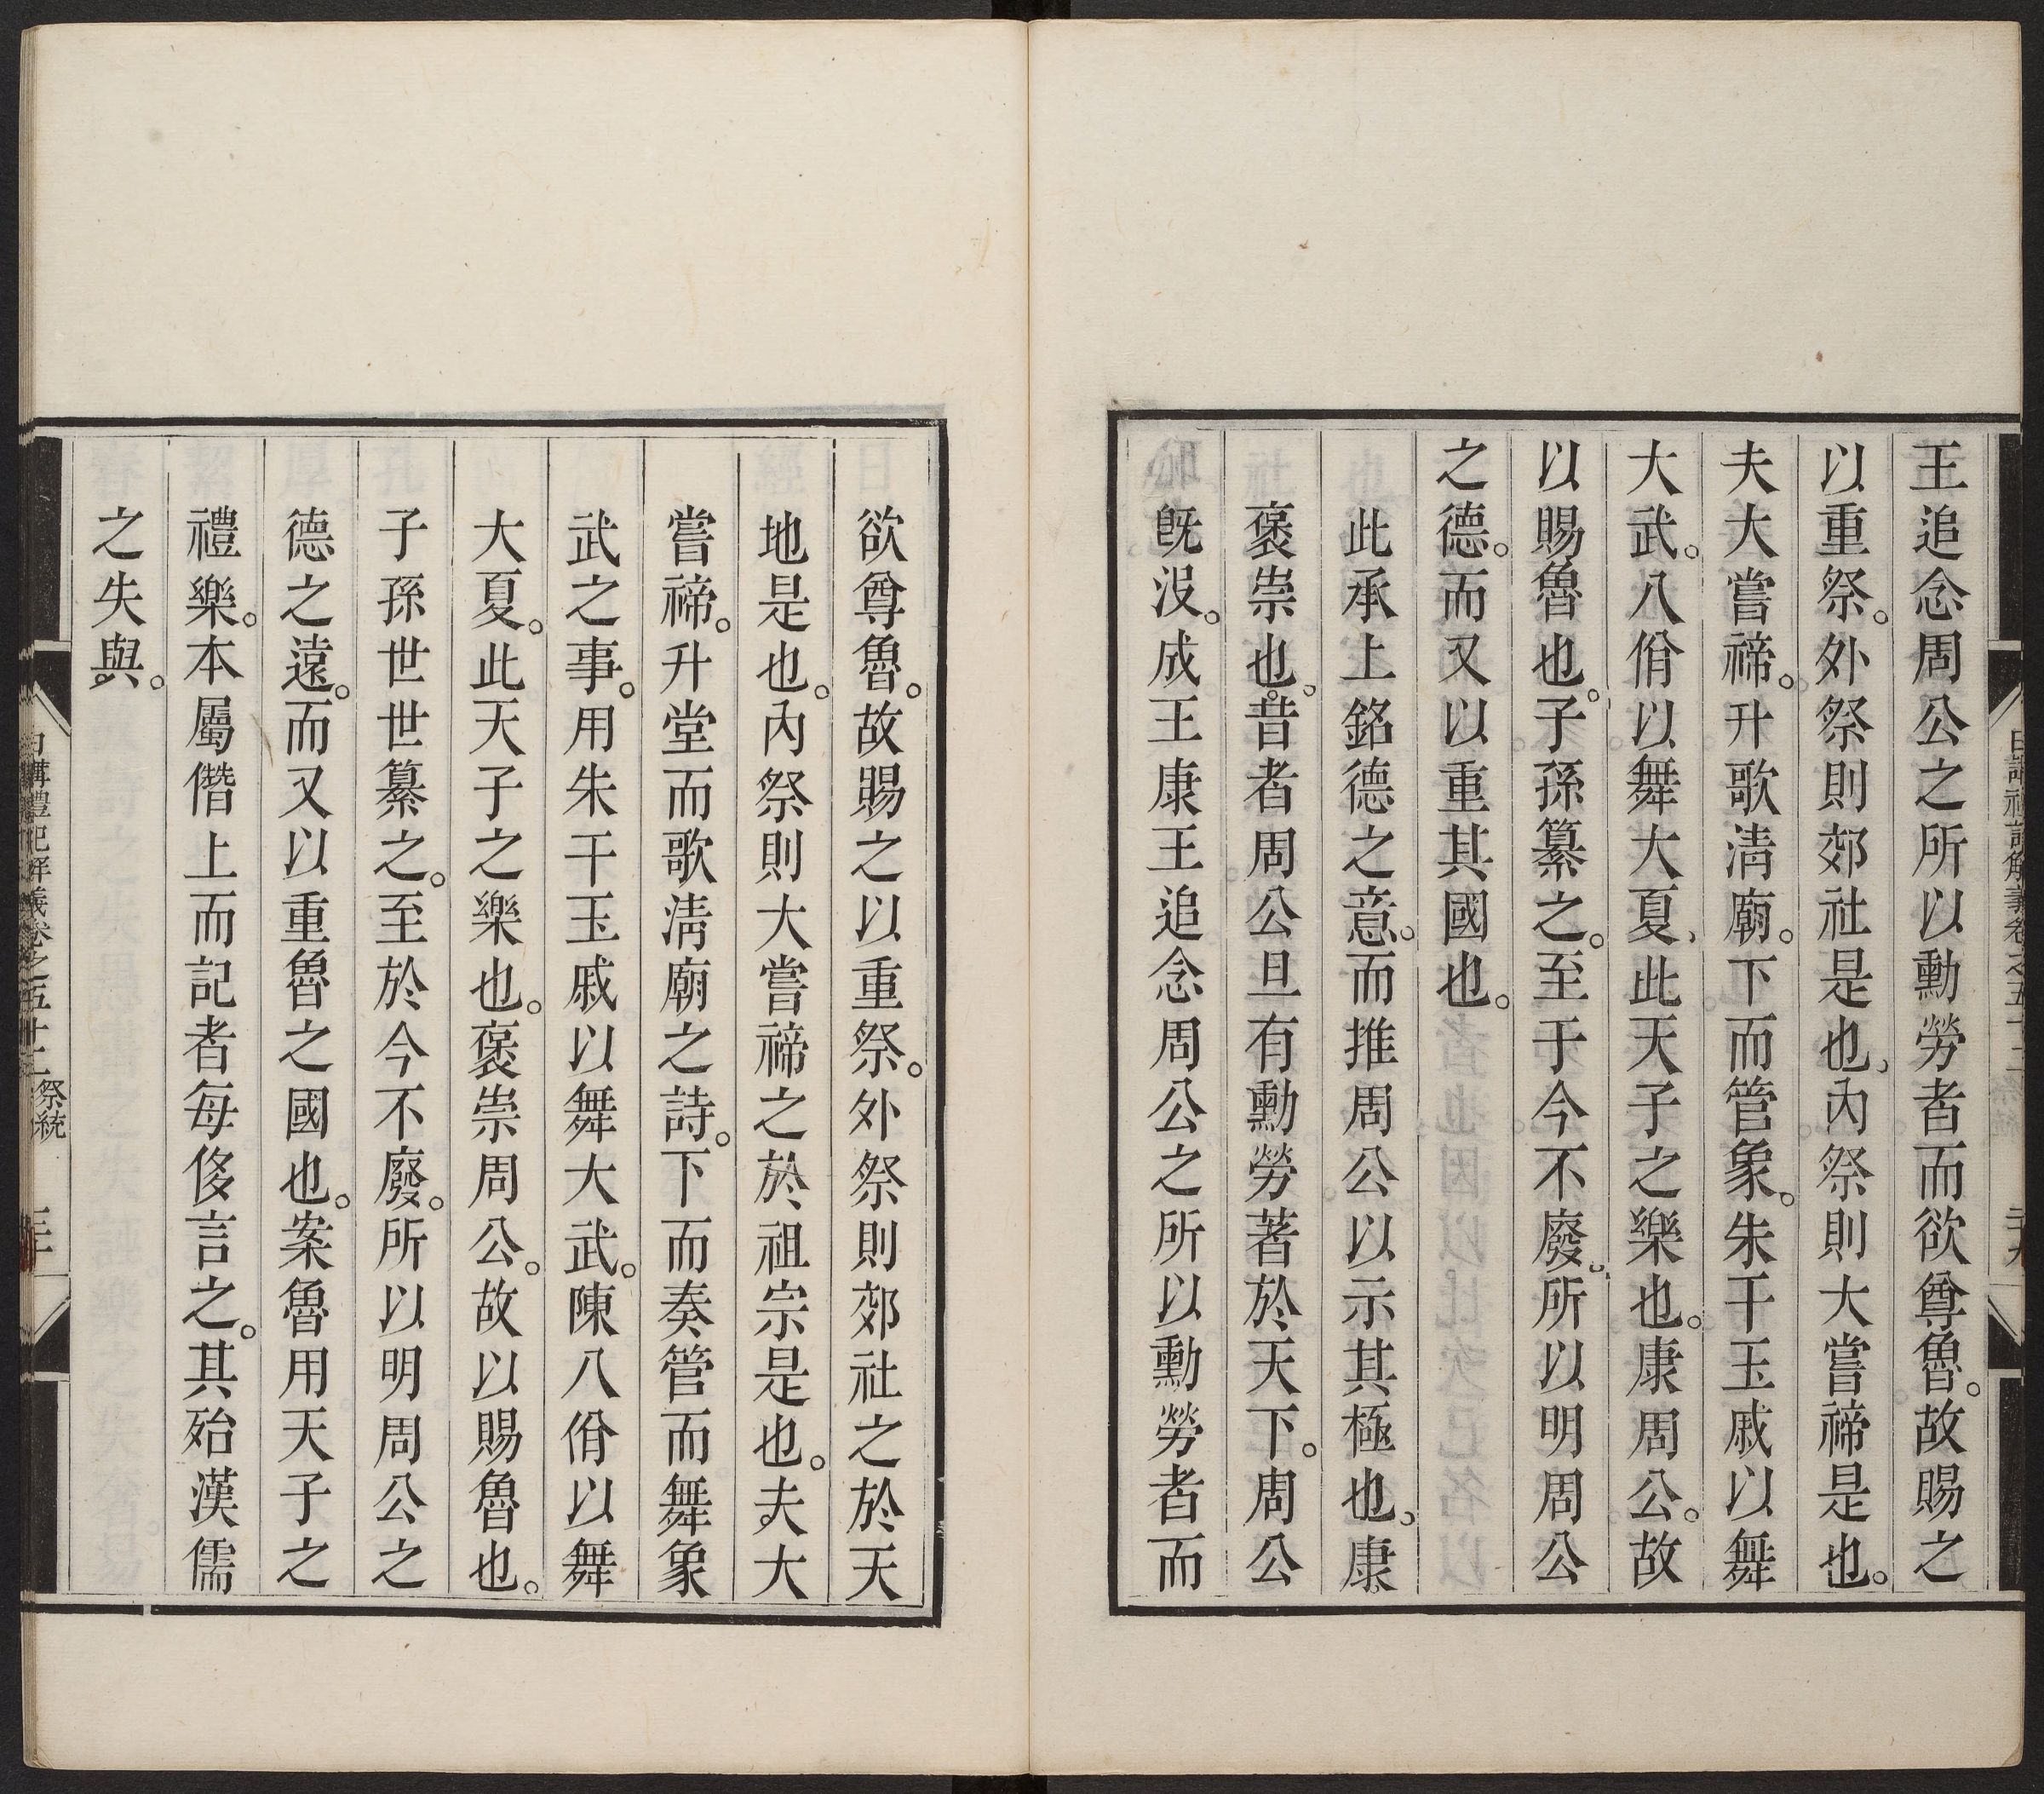 王追念周公之所以勳勞者而欲尊魯。故賜之
以重祭。外祭則郊社是也、內祭則大嘗禘是也。
夫大嘗禘。升歌清廟。下而管象。朱干玉戚以舞
大武。八佾以舞大夏、此天子之樂也。康周公。故
以賜魯也。子孫纂之。至于今不廢、所以明周公
之德。而又以重其國也。
此承上銘德之意。而推周公以示其極也、康、
褒崇也。昔者周公旦有勳勞著於天下。周公
旣沒。成王康王追念周公之所以勳勞者而
欲尊魯。故賜之以重祭。外祭則郊社之於天
地是也。內祭則大嘗禘之於祖宗是也。夫大
嘗禘。升堂而歌清廟之詩。下而奏管而舞象
武之事。用朱干玉戚以舞大武。陳八佾以舞
大夏。此天子之樂也。褒崇周公。故以賜魯也。
子孫世世纂之。至於今不廢。所以明周公之
德之遠。而又以重魯之國也。案魯用天子之
禮樂。本屬僭上而記者每侈言之。其殆漢儒
之失與。
日講禮記解義卷之五十二 祭統